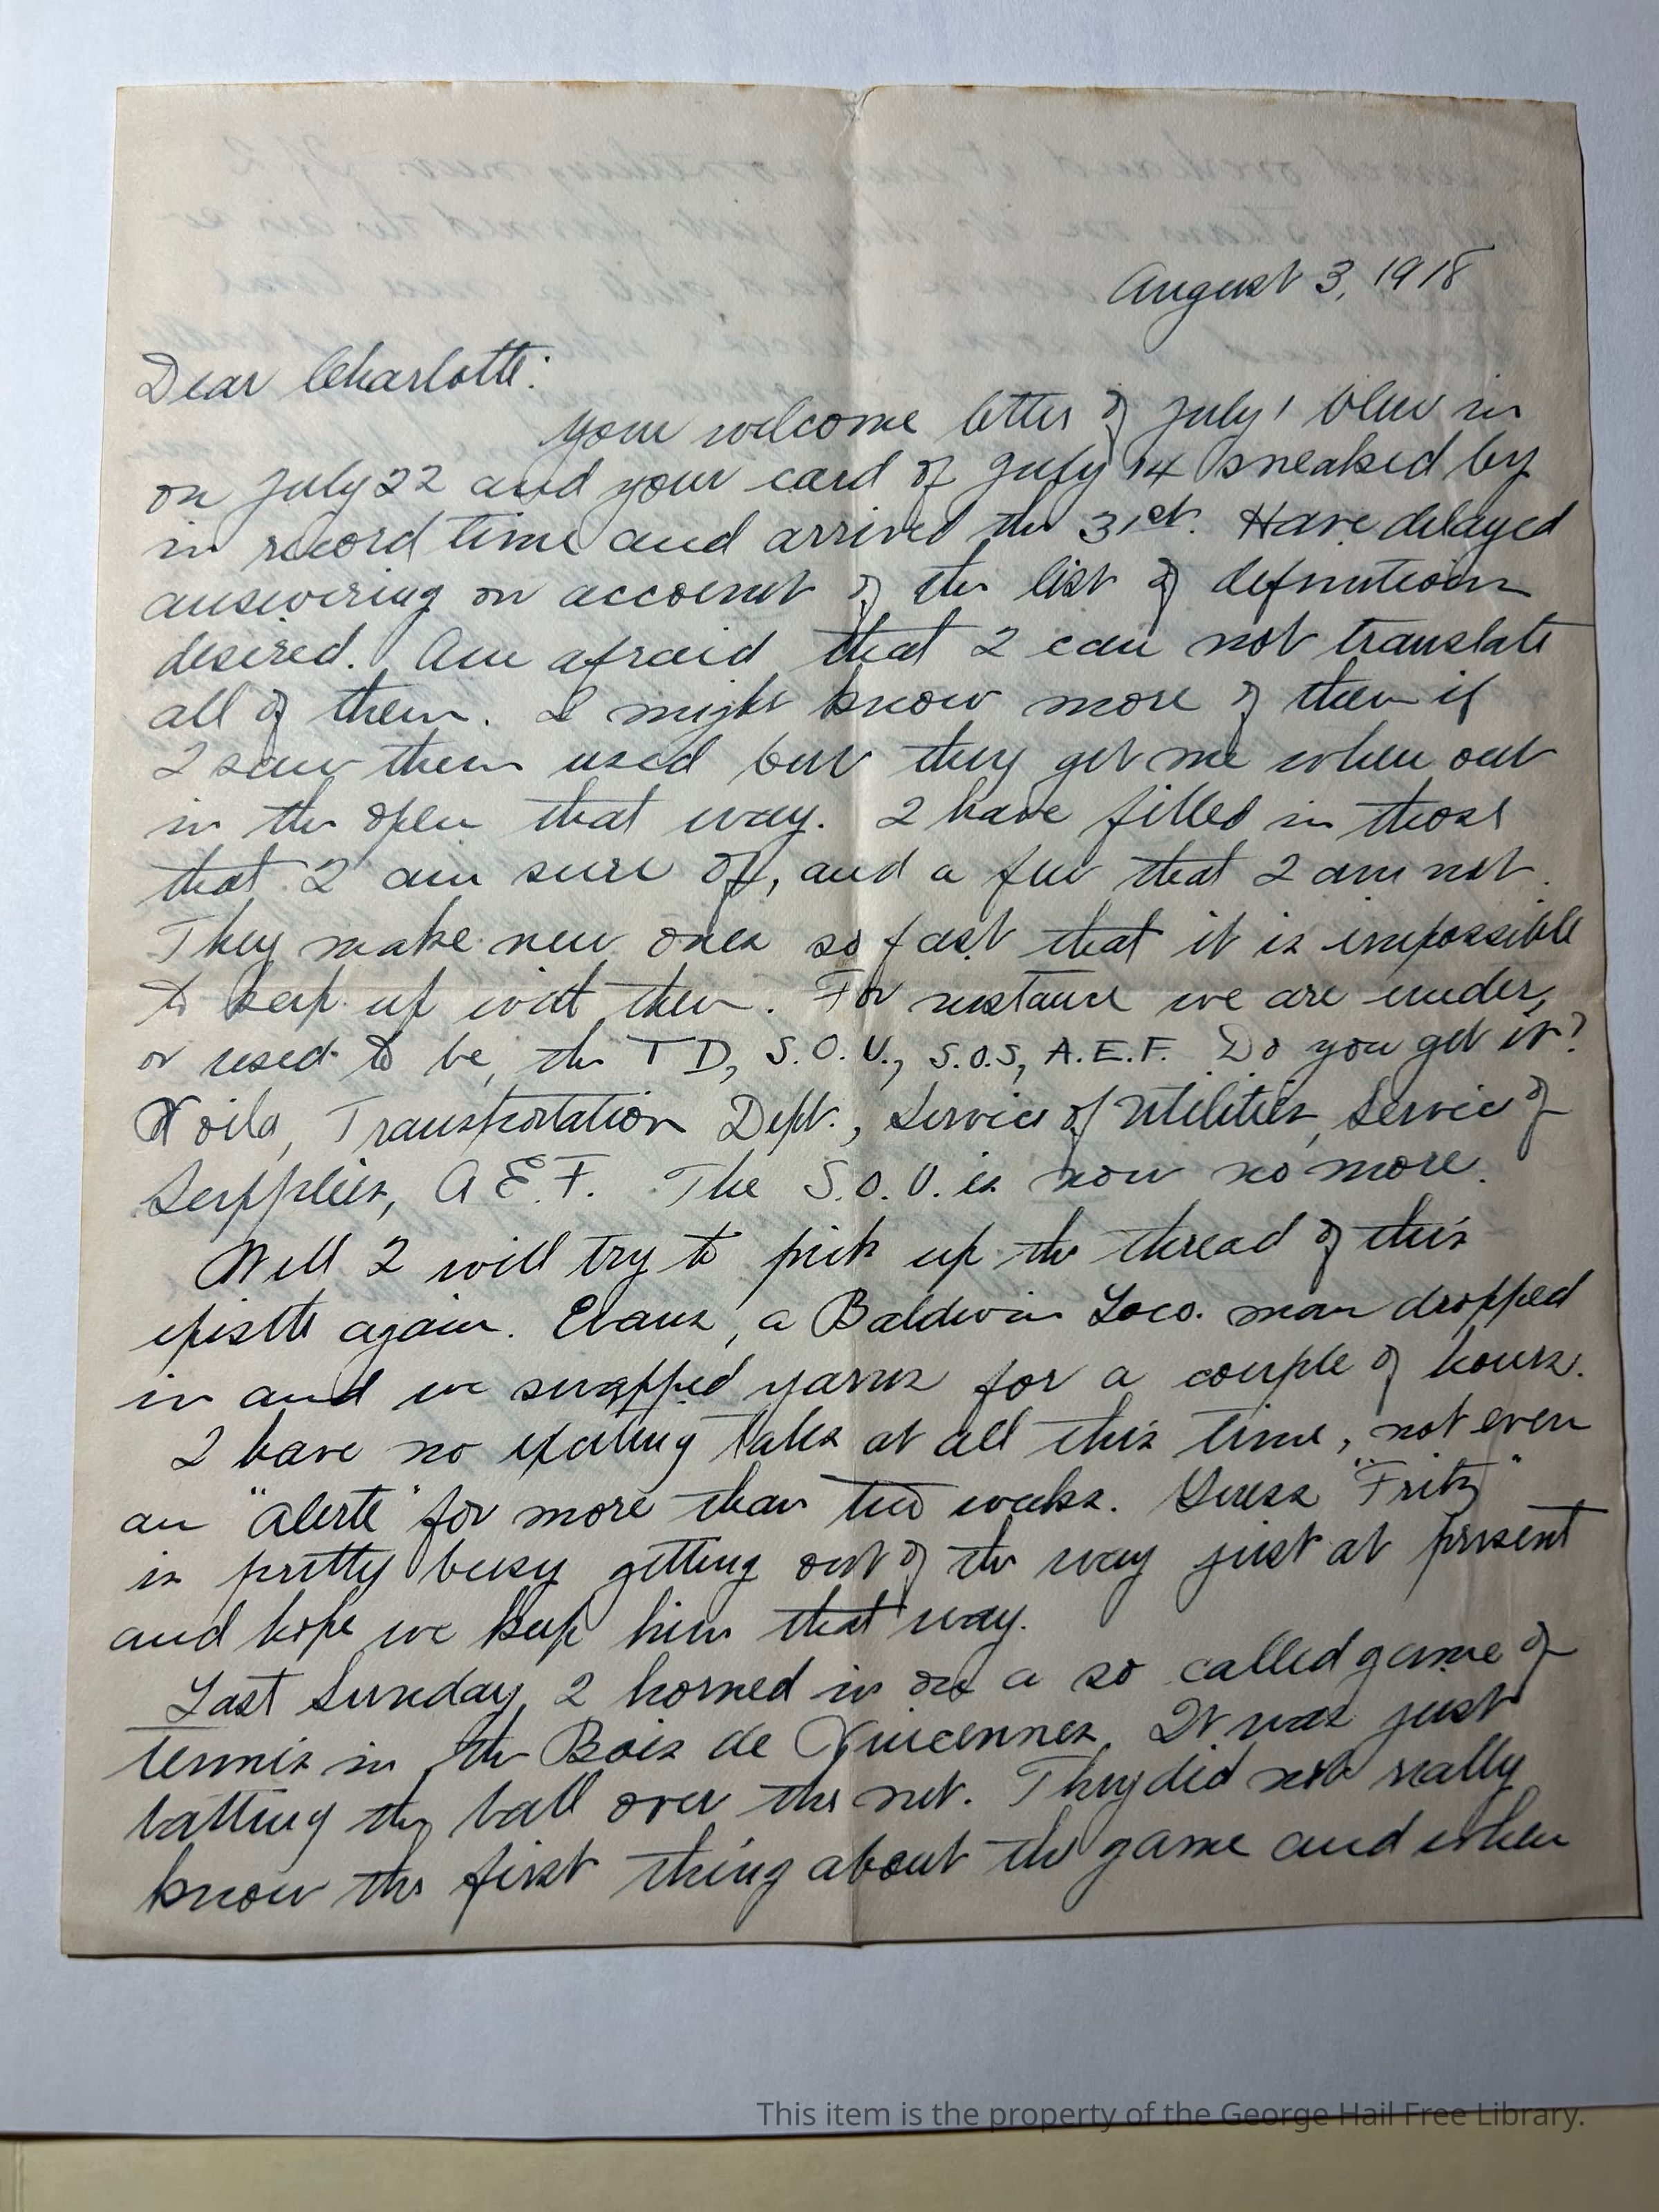 August 3, 1918
Dear Charlotte:
Your welcome letter of July 1 blew in
on July 22 and your card of July 14 sneaked by
in record time and arrived the 31st. Have delayed
answering on account of the list of definitions
desired. Am afraid that I can not translate
all of them. I might know more of them if
I saw them used but they get me when out
in the open that way. I have filled in those
that I am sure of, and a few that I am not.
They make new ones so fast that it is impossible
to keep up with them. For instance we are under,
or used to be, the T D, S.O.U., S.O.S, A.E.F. Do you get it?
Voila, Transportation Dept., Service of Utilities, Service of
Supplies, A E.F. The S.O.U. is now no more.
Well I will try to pick up the thread of this
epistle again. Evans, a Baldwin Loco. man dropped
in and we swapped yarns for a couple of hours.
I have no exciting tales at all this time, not even
an "alerte" for more than two weeks. Guess "Fritz"
is pretty busy getting out of the way just at present
and hope we keep him that way.
Last Sunday, I horned in on a so called game of
tennis in the Bois de Vincennes. It was just
batting the ball over the net. They did not really
know the first thing about the game and when
This item is the property of the George Hail Free Library.